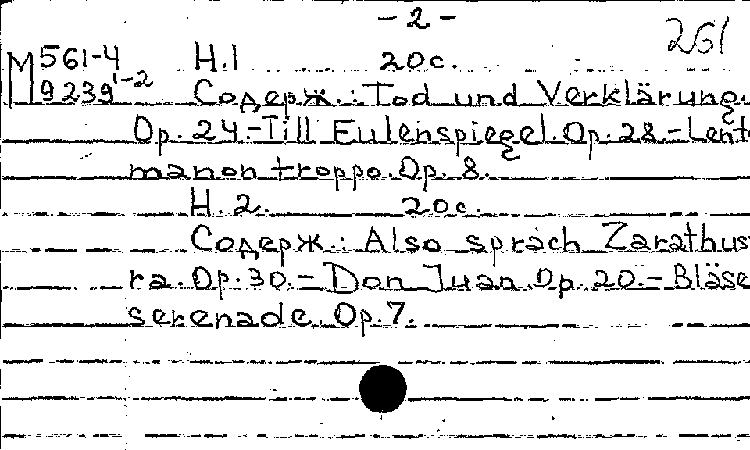 - 2 -
261
М 561-4 H.1 20с.
9239 1-2 Содерж.: Tod und Verklärung.
Op. 24.-Till Eulenspiegel. Op. 28.-Lent
ma non troppo. Op. 8.
H. 2. 20с.
Содерж.: Also sprach Zarathus
ra. Op. 30.- Don Juan. Op. 20.- Bläse
serenade. Op. 7.